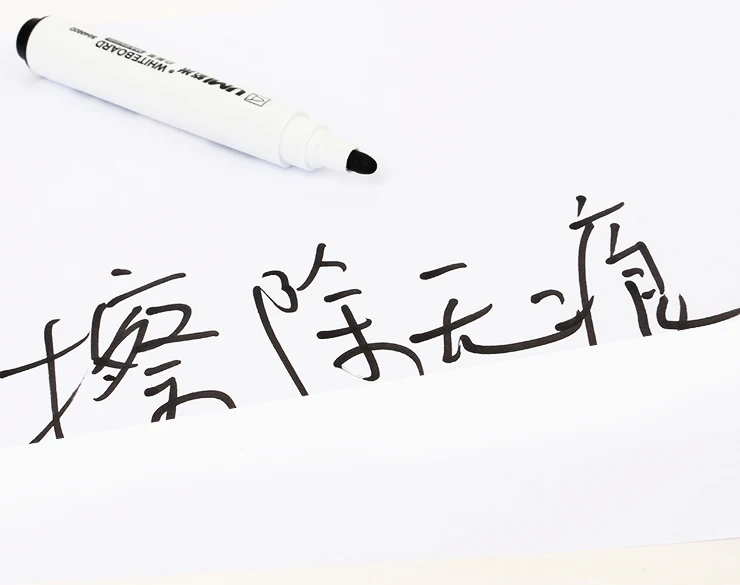 UMI悠米 WHITEBOARD
擦除无痕